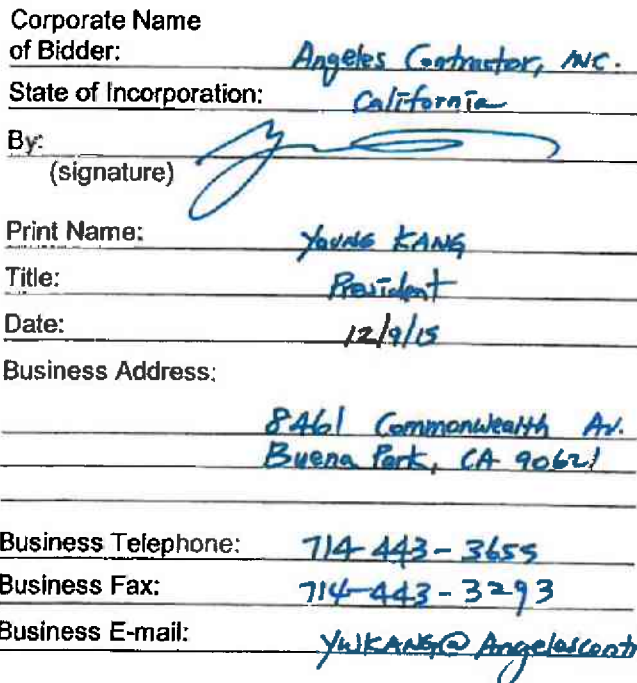 Corporate Name
of Bidder: Angeles Contractor, INC.
State of Incorporation: California
By:
(signature)
Print Name: YOUNG KANG
Title: President
Date: 12/9/15
Business Address:
8461 Commonwealth Av.
Buena Park, CA 90621
Business Telephone: 714-443-3655
Business Fax: 714-443-3293
Business E-mail: